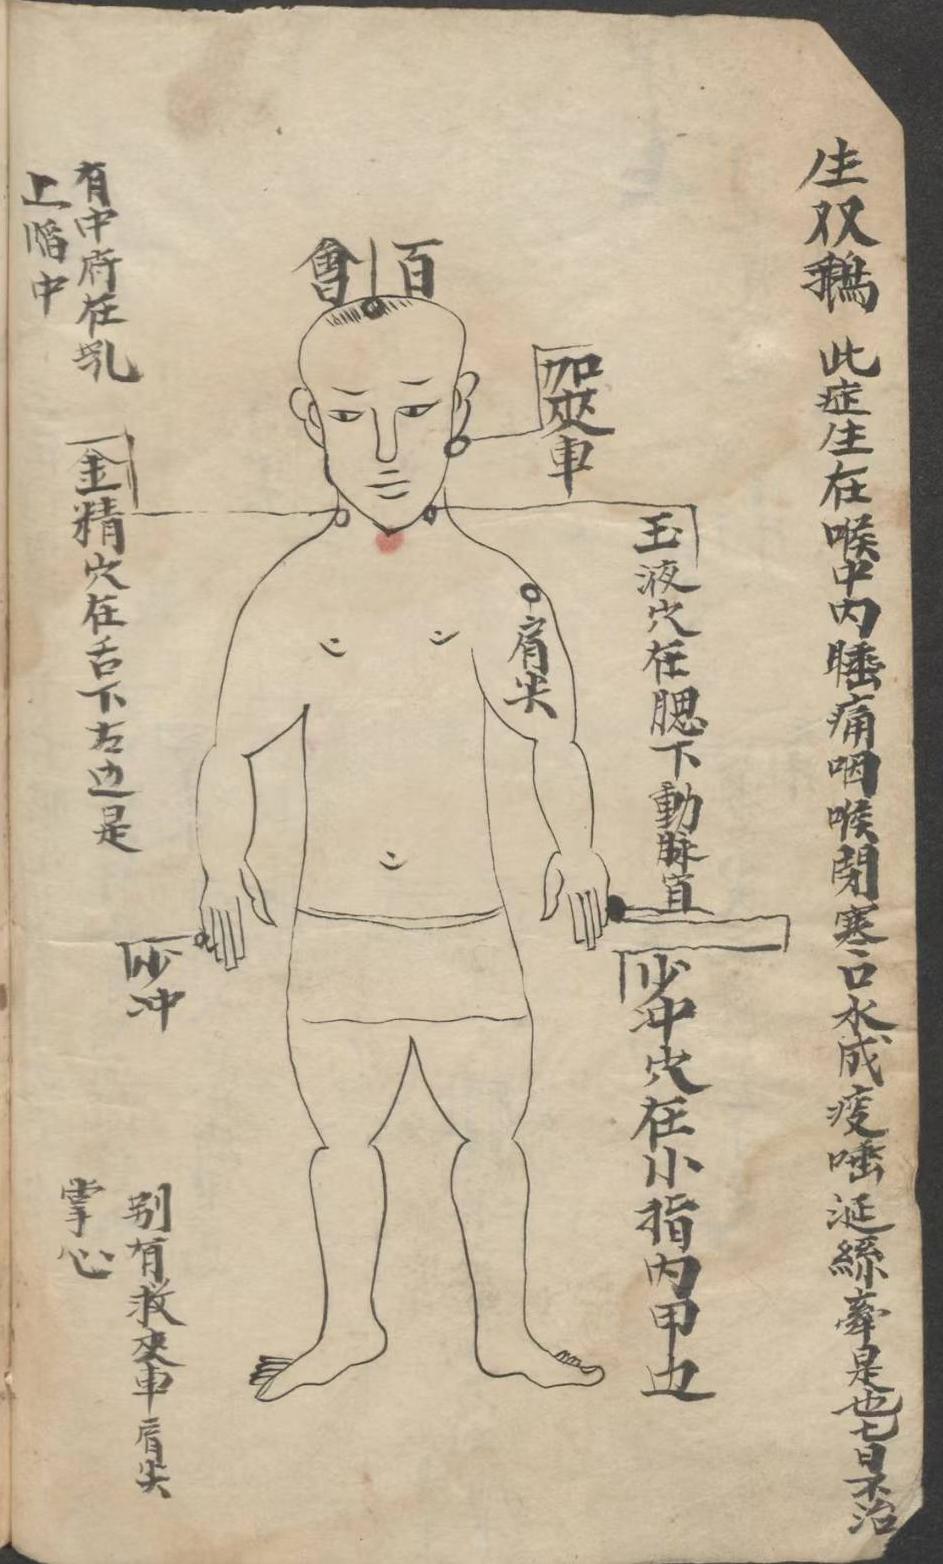 生双鵝 此症生在喉中内腄痛咽喉閉寒口水成痰唾涎絲牽是也七日不治
百會
加夾車
玉液穴在腮下動脉直
肩尖
少冲穴在小指内甲边
有中府在乳
上陷中
金精穴在舌下右边是
少冲
别有救夾車肩尖
掌心